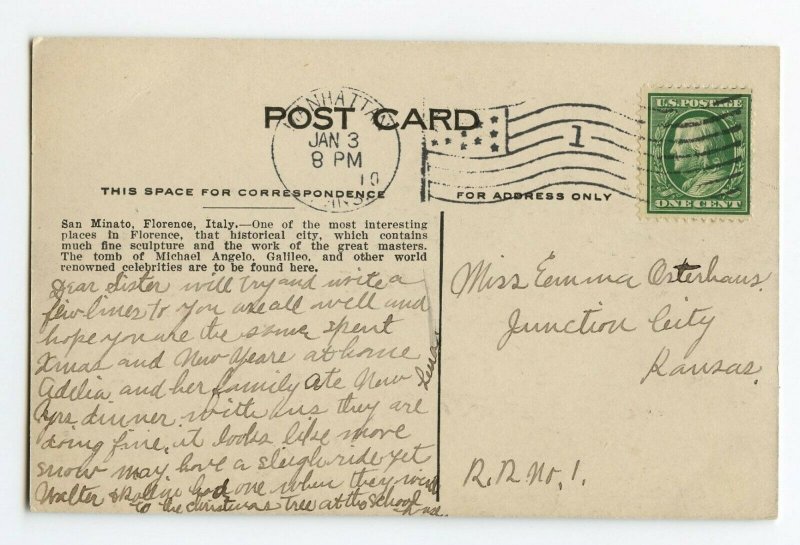 POST CARD
MANHATTAN
JAN 3
8 PM
10
KANS.
1
U.S. POSTAGE
ONE CENT
THIS SPACE FOR CORRESPONDENCE
FOR ADDRESS ONLY
San Minato, Florence, Italy.—One of the most interesting
places in Florence, that historical city, which contains
much fine sculpture and the work of the great masters.
The tomb of Michael Angelo, Galileo, and other world
renowned celebrities are to be found here.
Dear Sister will try and write a
few lines to you are all well and
hope you are the same spent
Xmas and New Yeare at home
Adelia and her family ate New
Yrs dinner with us they are
doing fine, it looks like more
snow may have a sleigh ride yet
Walter & had one when they went
to the christmas tree at the School
house
Miss Emma Osterhaus.
Junction City
Kansas.
R.R No. 1.